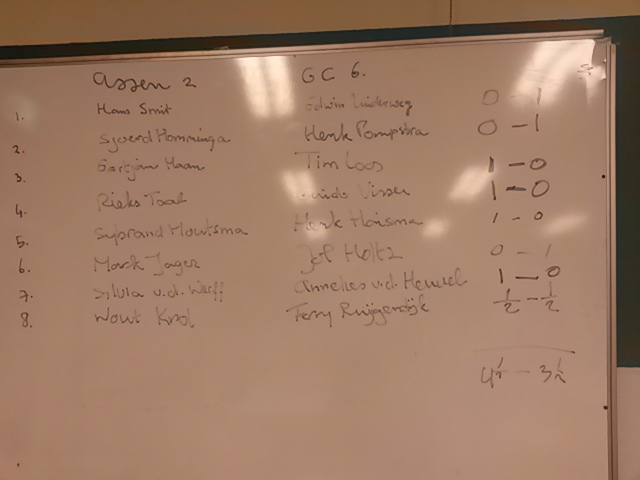 Assen 2 GC 6.
1. Hans Smit Edwin Zuiderweg 0 - 1
2. Sjoerd Homminga Henk Pompstra 0 - 1
3. Gertjan Haan Tim Loos 1 - 0
4. Rieks Taal Guido Visser 1 - 0
5. Sybrand Houtsma Henk Haisma 1 - 0
6. Mark Jager Jef Holtz 0 - 1
7. Silvia v.d. Werff Annelies v.d. Heuvel 1 - 0
8. Wout Krol Terry Ruijgendijk ½ - ½
4½ - 3½